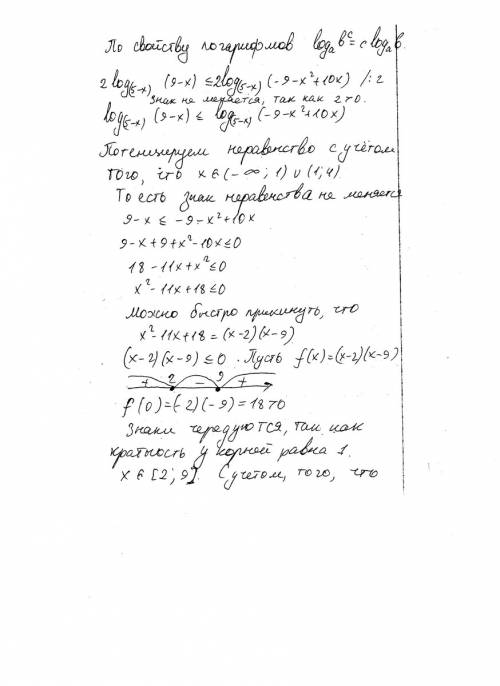 По свойству логарифмов log_a b^c = c log_a b.
2 log_(5-x) (9-x) ≤ 2 log_(5-x) (-9-x²+10x) /:2
Знак не меняется, так как 2>0.
log_(5-x) (9-x) ≤ log_(5-x) (-9-x²+10x)
Потенцируем неравенство с учётом
того, что x ∈ (-∞; 1) ∪ (1; 4)
То есть знак неравенства не меняется
9-x ≤ -9-x²+10x
9-x+9+x²-10x≤0
18-11x+x²≤0
x²-11x+18≤0
Можно быстро прикинуть, что
x²-11x+18=(x-2)(x-9)
(x-2)(x-9)≤0. Пусть f(x)=(x-2)(x-9)
+ 2 - 9 +
f(0)=(-2)(-9)=18>0
Знаки чередуются, так как
кратность у корней равна 1.
x ∈ [2; 9]. С учетом, того, что